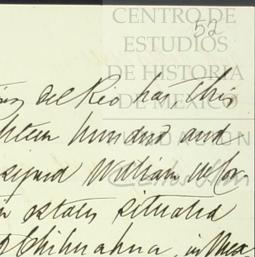 CENTRO DE
ESTUDIOS
DE HISTORIA
DE MÉXICO
52
del Rio has, this
hteen hundred and
signed William McCor-
n estates situated
of Chihuahua, in Mex